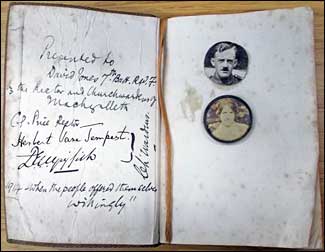 Presented to
David Jones 7th Batt. R.W.F
by the Rector and Churchwardens of
Machynlleth
Rector
Herbert Vane Tempest.
Ch: Wardens.
1914 "When the people offered themselves
willingly"